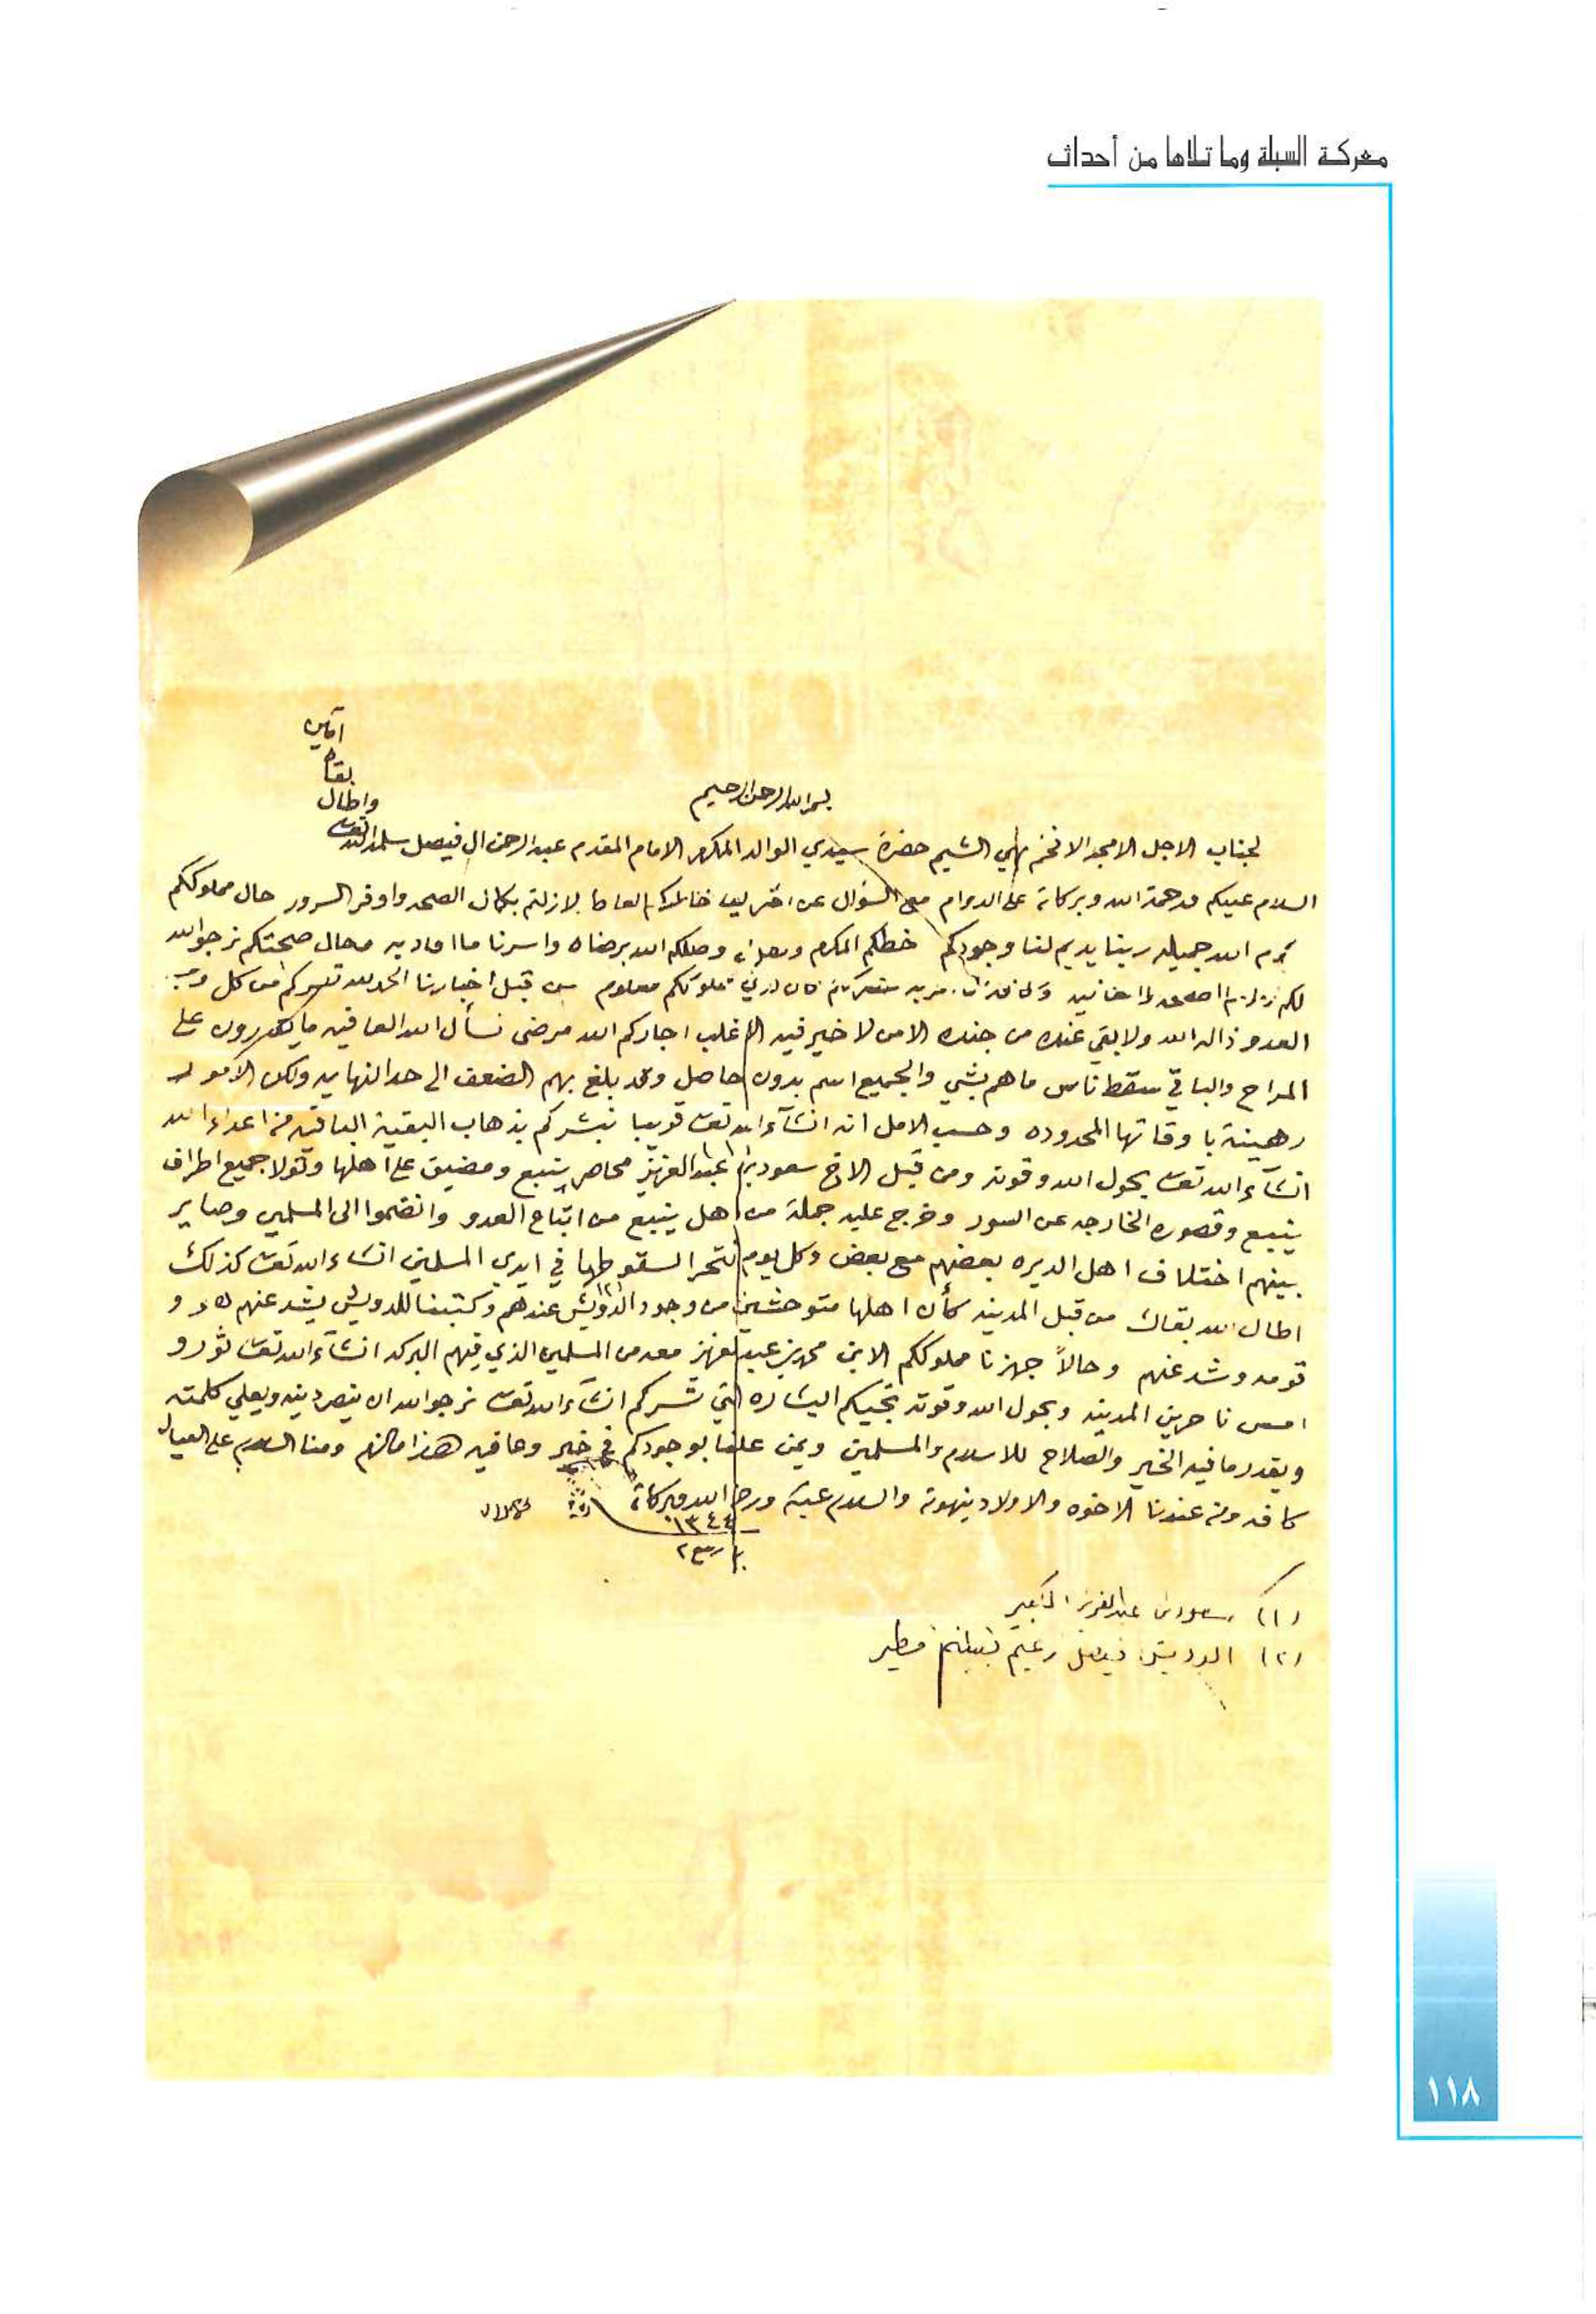 معركة السبلة وما تلاها من أحداث
بسم الله الرحمن الرحيم
لجناب الاجل الامجد الافخم بهي الشيم حضرة سيدي الوالد المكرم الامام المقدم عبد الرحمن ال فيصل سلمه الله تعالى
واطال
بقاه
آمين
السلام عليكم ورحمة الله وبركاته على الدوام مع السؤال عن شريف خاطركم العاطر لازلتم بكمال الصحه واوفر السرور حال مملوككم
كرم الله جميله ربنا يديم لنا وجودكم خطكم المكرم وصل وصلكم الله برضاه واسرنا ما افاد به صحتكم نرجوا الله
لكم معلوم من قبل اخبارنا الحمد لله تسركم من كل وجه
العدو ذاله الله ولا بقي عنده من جنده الا من لا خير فيه الاغلب اجاركم الله مرضى نسأل الله العافيه ما يقدرون على
المراح والباقي سقط ناس ما هم بشي والجميع اسم بدون حاصل وقد بلغ بهم الضعف الى حد النهايه ولكن الامور
رهينة باوقاتها المحدوده وحسب الامل انه انشآء الله تعالى قريبا نبشركم بذهاب البقية الباقيه من اعداء الله
انشآء الله تعالى بحول الله وقوته ومن قبل الاخ سعود بن عبد العزيز (١) محاصر ينبع ومضيق على اهلها وتولا جميع اطراف
ينبع وقصوره الخارجه عن السور وخرج عليه جملة من اهل ينبع من اتباع العدو وانضموا الى المسلمين وصاير
بينهم اختلاف اهل الديره بعضهم مع بعض وكل يوم نتحرا سقوطها في ايدي المسلمين انشاء الله تعالى كذلك
اطال الله بقاك من قبل المدينه كأن اهلها متوحشين من وجود الدويش (٢) عندهم وكتبنا للدويش يشد عنهم هو و
قومه وشد عنهم وحالاً جهزنا مملوككم الابن محمد بن عبد العزيز معه من المسلمين الذي فيهم البركه انشآء الله تعالى ثورو
امس ناحرين المدينه وبحول الله وقوته تجيكم البشاره التي تسركم انشآء الله تعالى نرجو الله ان ينصر دينه ويعلي كلمته
ويقدر ما فيه الخير والصلاح للاسلام والمسلمين ويمن علينا بوجودكم في خير وعافيه هذا ما لزم ومنا السلام على العيال
كافه ومن عندنا الاخوه والاولاد ينهونه والسلام عليكم ورحمة الله وبركاته
١٣٤٤
ربيع ٢
(١) سعود بن عبد العزيز الكبير
(٢) الدويش فيصل زعيم قبيلة مطير
١١٨